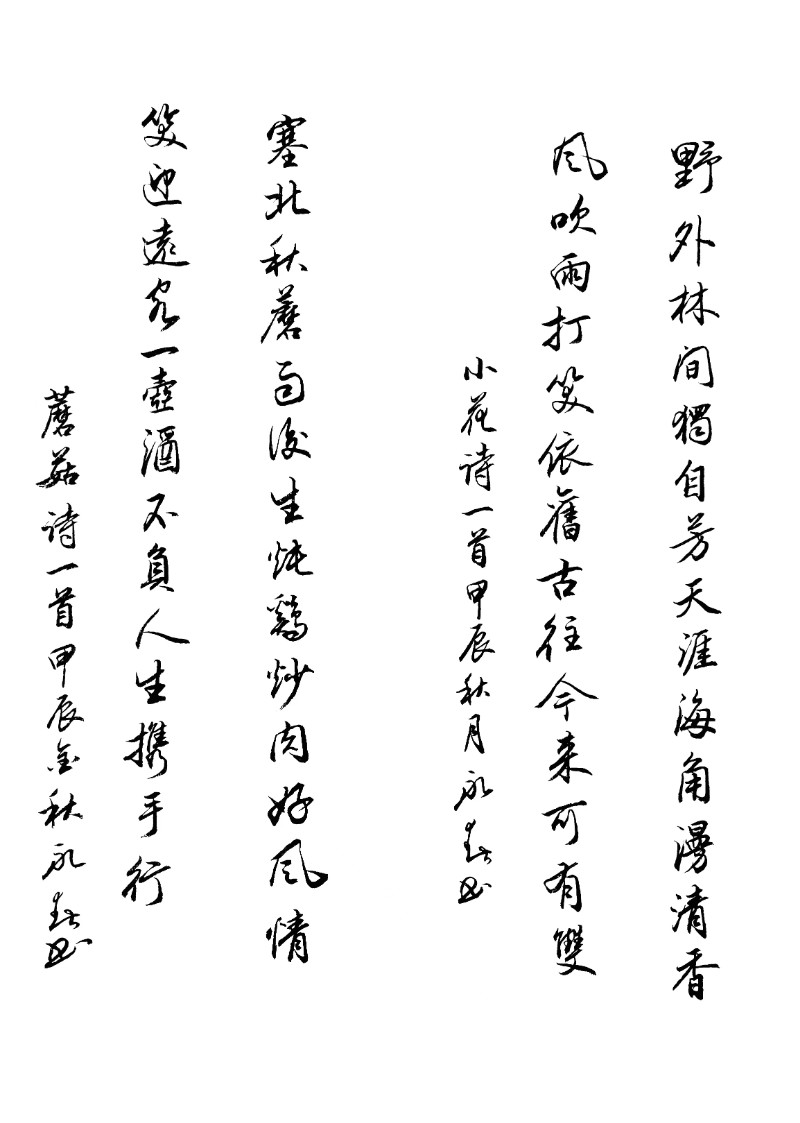 野外林间獨自芳天涯海角漫清香
风吹雨打笑依舊古往今来可有雙
小花诗一首甲辰秋月永春书
塞北秋蘑雨后生炖鷄炒肉好风情
笑迎遠客一壺酒不負人生携手行
蘑菇诗一首甲辰金秋永春书